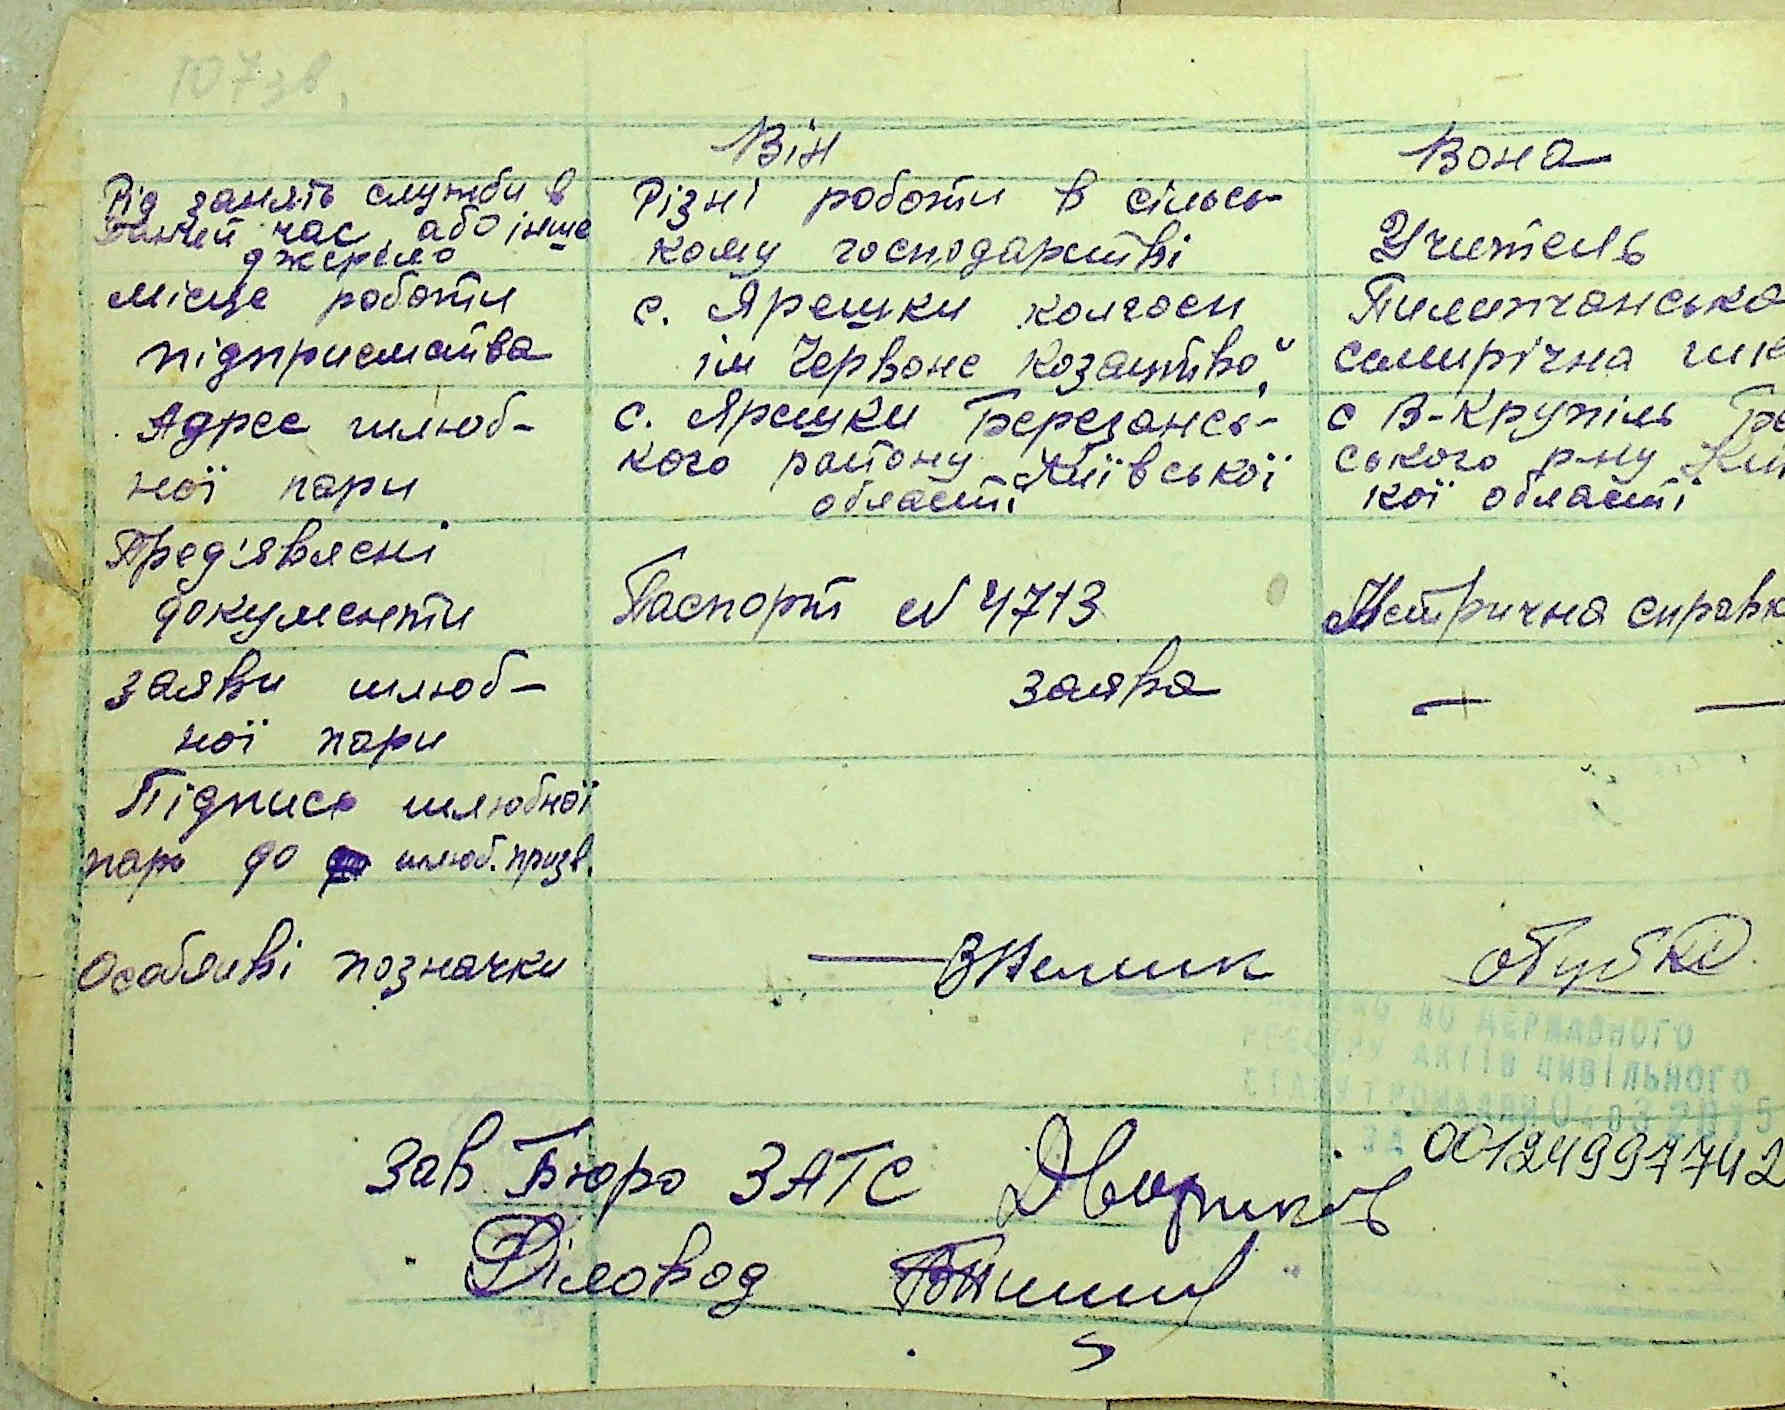 107зв.
Він
Вона
Рід занять служби в
даний час або інше
джерело
Різні роботи в сільсь-
кому господарстві
Учитель
Місце роботи
підприємства
с. Ярешки колгосп
ім Червоне козацтво"
Пилипчанська
семирічна шк
Адрес шлюб-
ної пари
с. Ярешки Березансь-
кого району Київської
області
с В-Крупіль Бе
ського р-ну Киї
кої області
Пред'явлені
документи
Паспорт № 4713
Метрична справк
Заяви шлюб-
ної пари
заява
— —
Підпись шлюбної
пари до шлюб. призв.
Особливі позначки
ДО ДЕРЖАВНОГО
РЕЄСТРУ АКТІВ ЦИВІЛЬНОГО
СТАНУ ГРОМАДЯН
ЗА
00124997742
Зав Бюро ЗАГС
Діловод